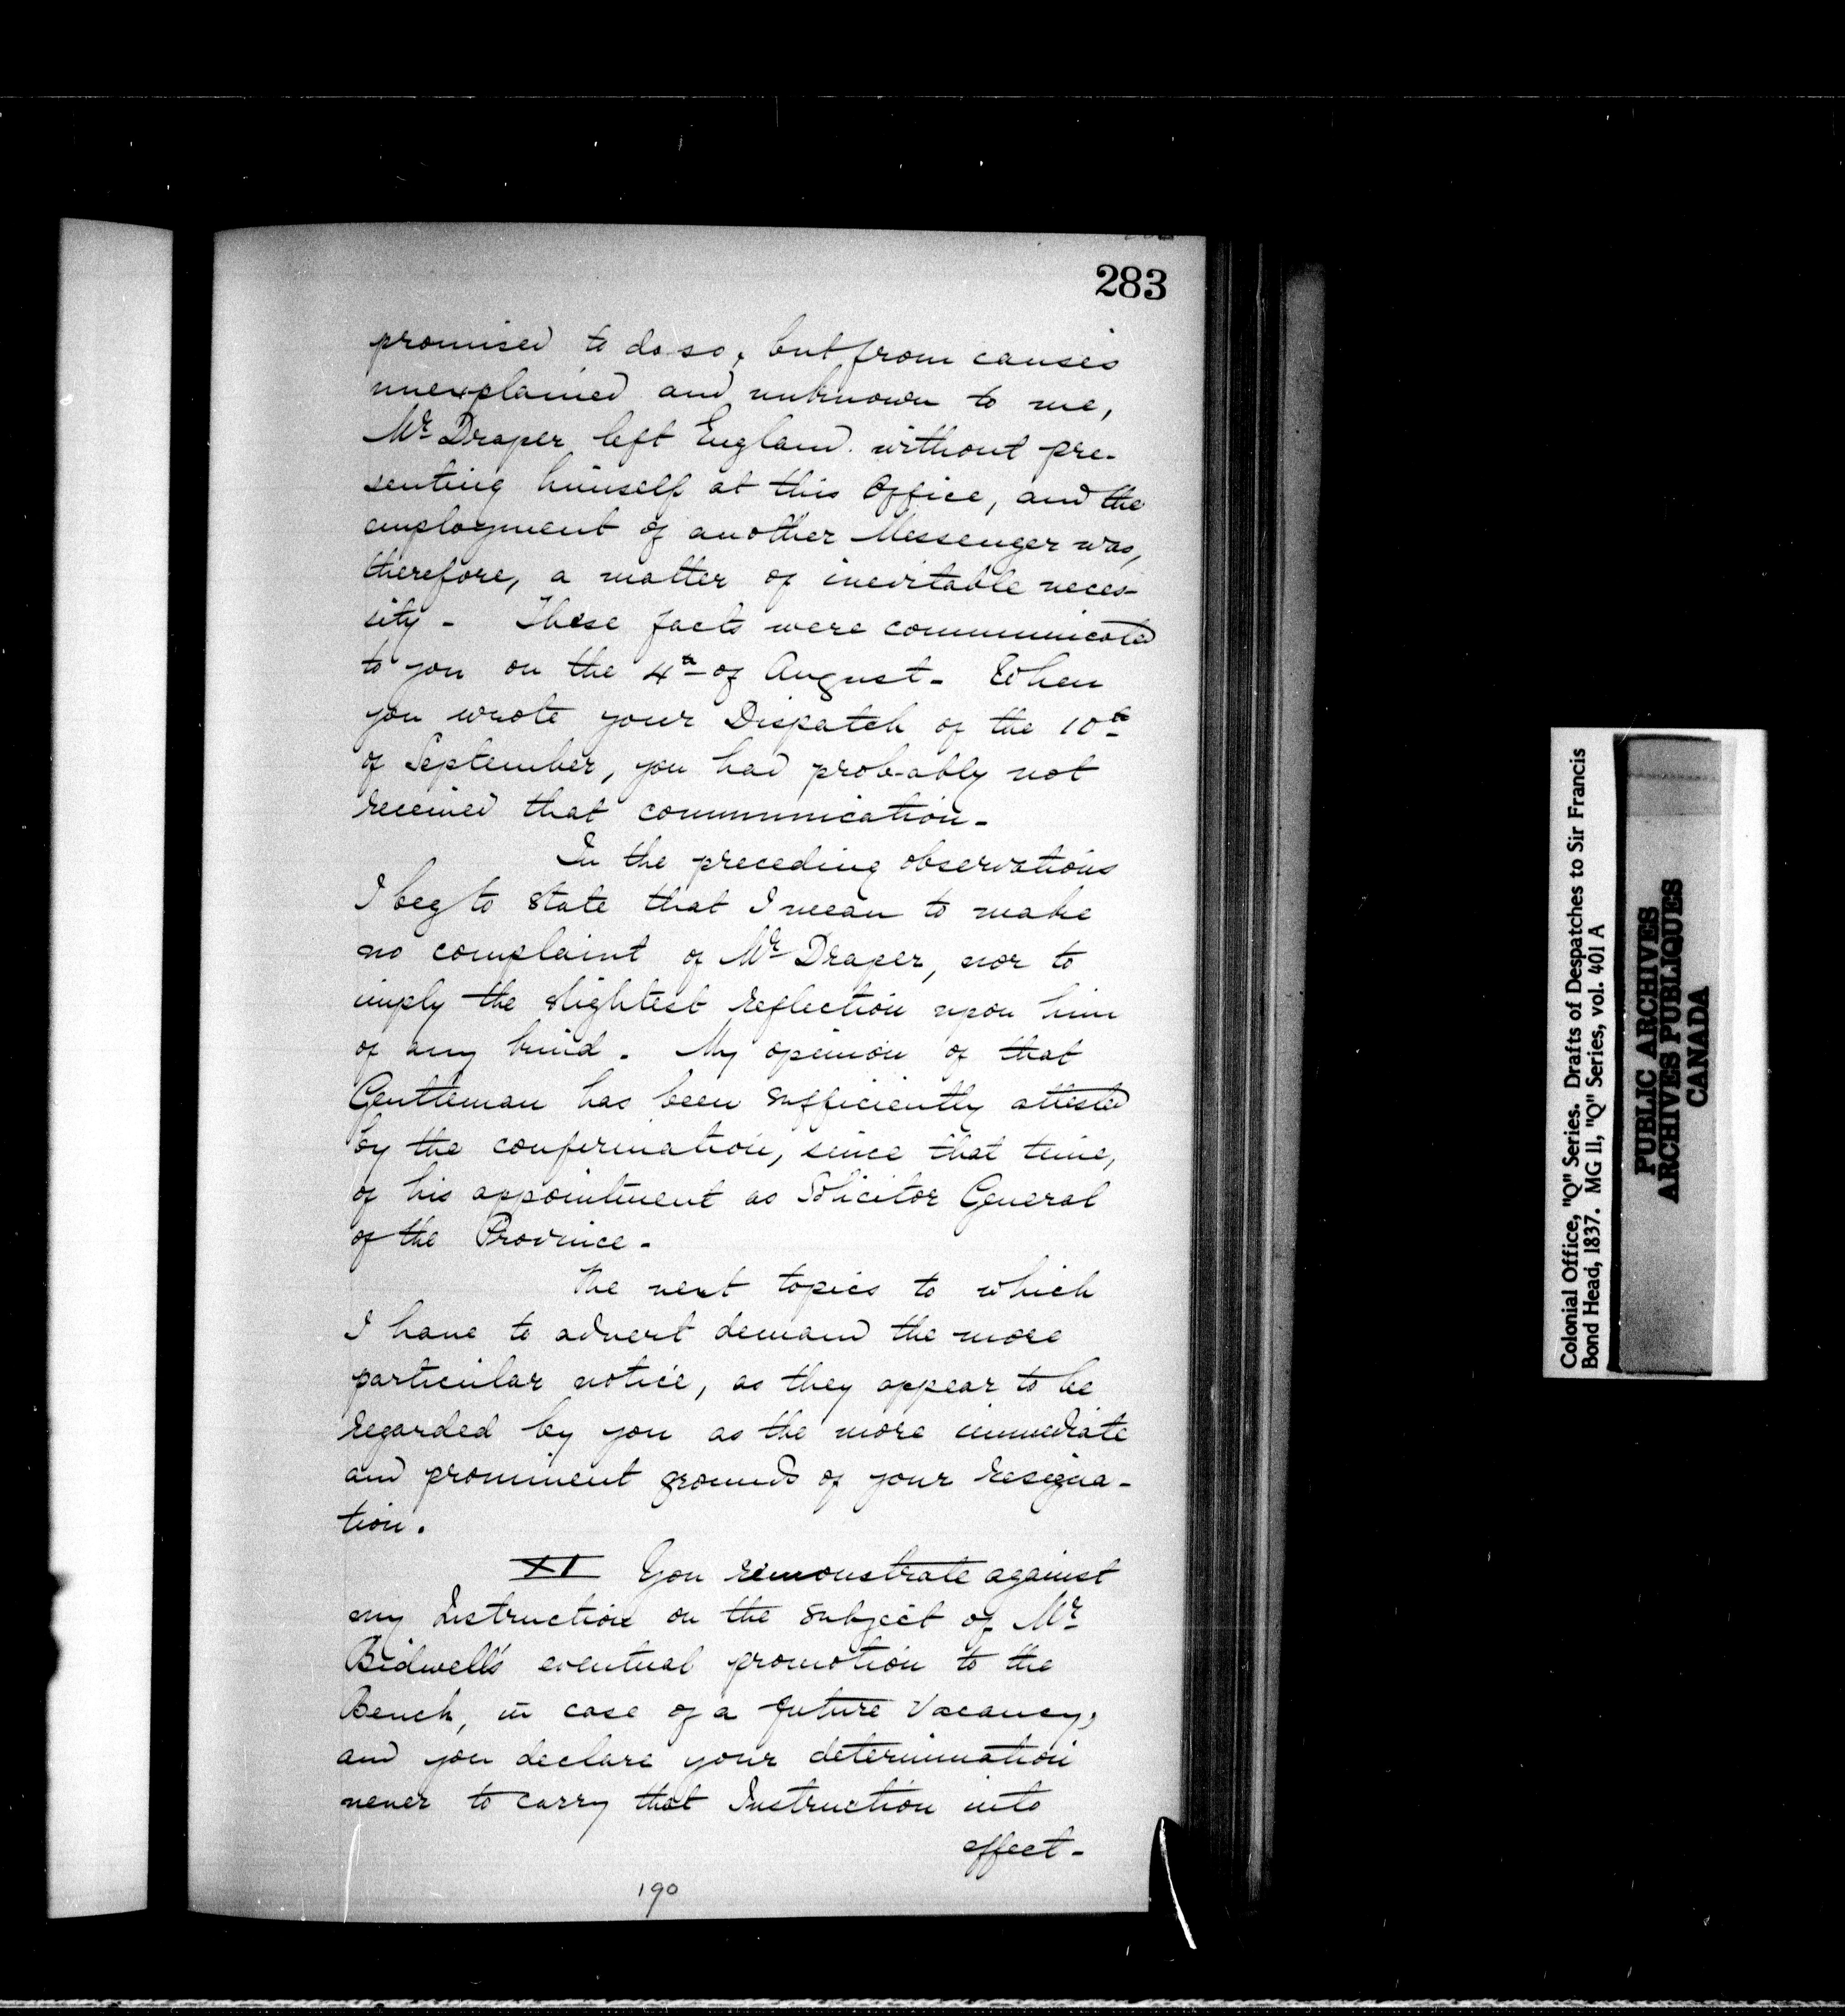 283
promised to do so, but from causes
unexplained and unknown to me,
Mr Draper left England without pre-
senting himself at this Office, and the
employment of another Messenger was,
therefore, a matter of inevitable neces-
sity - These facts were communicated
to you on the 4th of August - When
you wrote your Dispatch of the 10th
of September, you had probably not
received that communication -
In the preceding observations
I beg to state that I mean to make
no complaint of Mr Draper, nor to
imply the slightest reflection upon him
of any kind. My opinion of that
Gentleman has been sufficiently attested
by the confirmation, since that time,
of his appointment as Solicitor General
of the Province -
The next topics to which
I have to advert demand the more
particular notice, as they appear to be
regarded by you as the more immediate
and prominent grounds of your resigna-
tion.
XI You remonstrate against
my Instruction on the subject of Mr
Bidwell's eventual promotion to the
Bench, in case of a future Vacancy,
and you declare your determination
never to carry that Instruction into
effect -
190
Colonial Office, "Q" Series. Drafts of Despatches to Sir Francis
Bond Head, 1837. MG 11, "Q" Series, vol. 401 A
PUBLIC ARCHIVES
ARCHIVES PUBLIQUES
CANADA